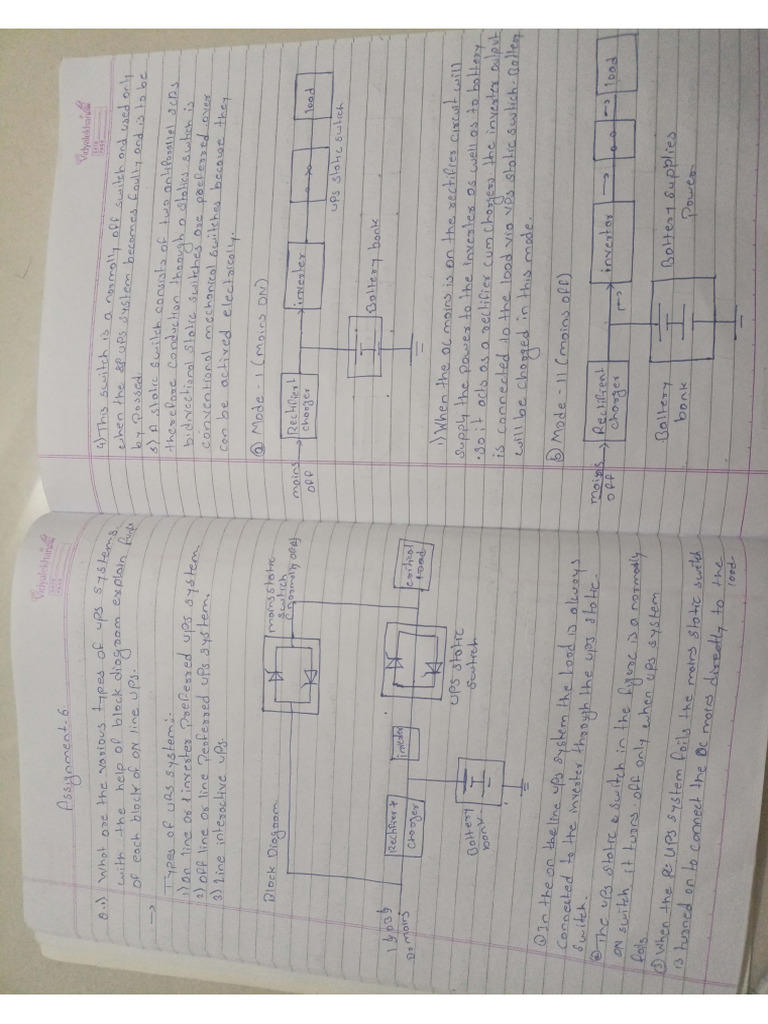 Assignment-6
Q.1) What are the various types of UPS systems.
with the help of block diagram explain
of each block of ON line UPS.
→ Types of UPS system:-
1) On line or inverter preferred UPS system
2) Off line or line Preferred UPS system.
3) Line interactive UPS.
Block Diagram
mains static
switch
(normally off)
1ϕ or 3ϕ
mains
Rectifier &
charger
UPS static
switch
critical
load
Battery
bank
① In the on the line UPS system the load is always
connected to the inverter through the UPS static
switch.
② The UPS static switch in the figure is a normally
ON switch it turns off only when UPS system
fails
③ When the UPS system fails the mains static switch
is turned on to connect the mains directly to the
load.
Vidyalekhan
DATE
PAGE
4) This switch is a normally off switch and used only
when the UPS system becomes faulty and is to be
by passed.
5) A static switch consists of two antiparallel SCRs
therefore conduction through a statics switch is
bidirectional static switches are preferred over
conventional mechanical switches because they
can be actired electrically.
ⓐ Mode - I (mains ON)
mains
off
Rectifier
charger
inverter
load
UPS static switch
Battery bank
1) When the ac mains is on the rectifier circuit will
supply the power to the inverter as well as to battery
. So it acts as a rectifier cum charger, the inverter output
is connected to the load via UPS static switch. Battery
will be charged in this mode.
ⓑ Mode - II (mains off)
mains
off
Rectifient
charger
invertor
load
Battery
bank
Battery supplies
power